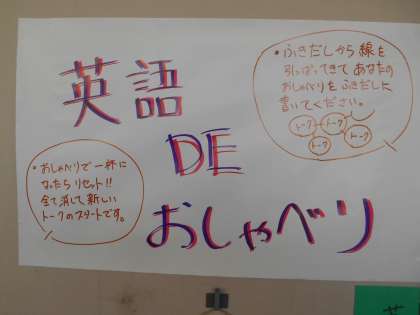 英語
DE
おしゃべり
•ふきだしから線を
引っぱってきてあなたの
おしゃべりをふきだしに
書いてください。
トーク
トーク
トーク
トーク
•おしゃべりで一杯に
なったらリセット!!
全て消して新しい
トークのスタートです。